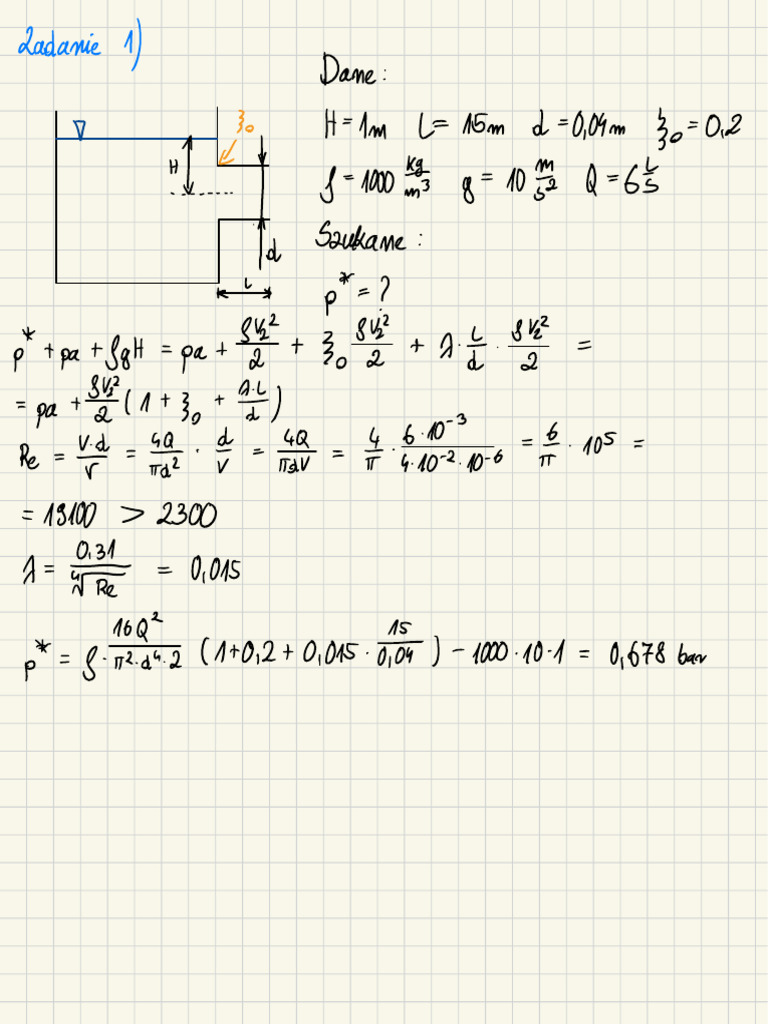 Zadanie 1)
Dane:
H = 1m L = 15m d = 0,04m ξ₀ = 0,2
ρ = 1000 kg/m³ g = 10 m/s² Q = 6 L/s
Szukane:
p* = ?
ξ₀
H
d
L
p* + pa + ρgH = pa + ρV₂²/2 + ξ₀ ρV₂²/2 + λ · L/d · ρV₂²/2 =
= pa + ρV₂²/2 (1 + ξ₀ + λ·L/d)
Re = V·d/ν = 4Q/πd² · d/ν = 4Q/πdν = 4/π · 6·10⁻³/4·10⁻²·10⁻⁶ = 6/π · 10⁵ =
= 19100 > 2300
λ = 0,31/⁴√Re = 0,015
p* = ρ · 16Q²/π²·d⁴·2 (1+0,2+0,015 · 15/0,04) − 1000·10·1 = 0,678 bar